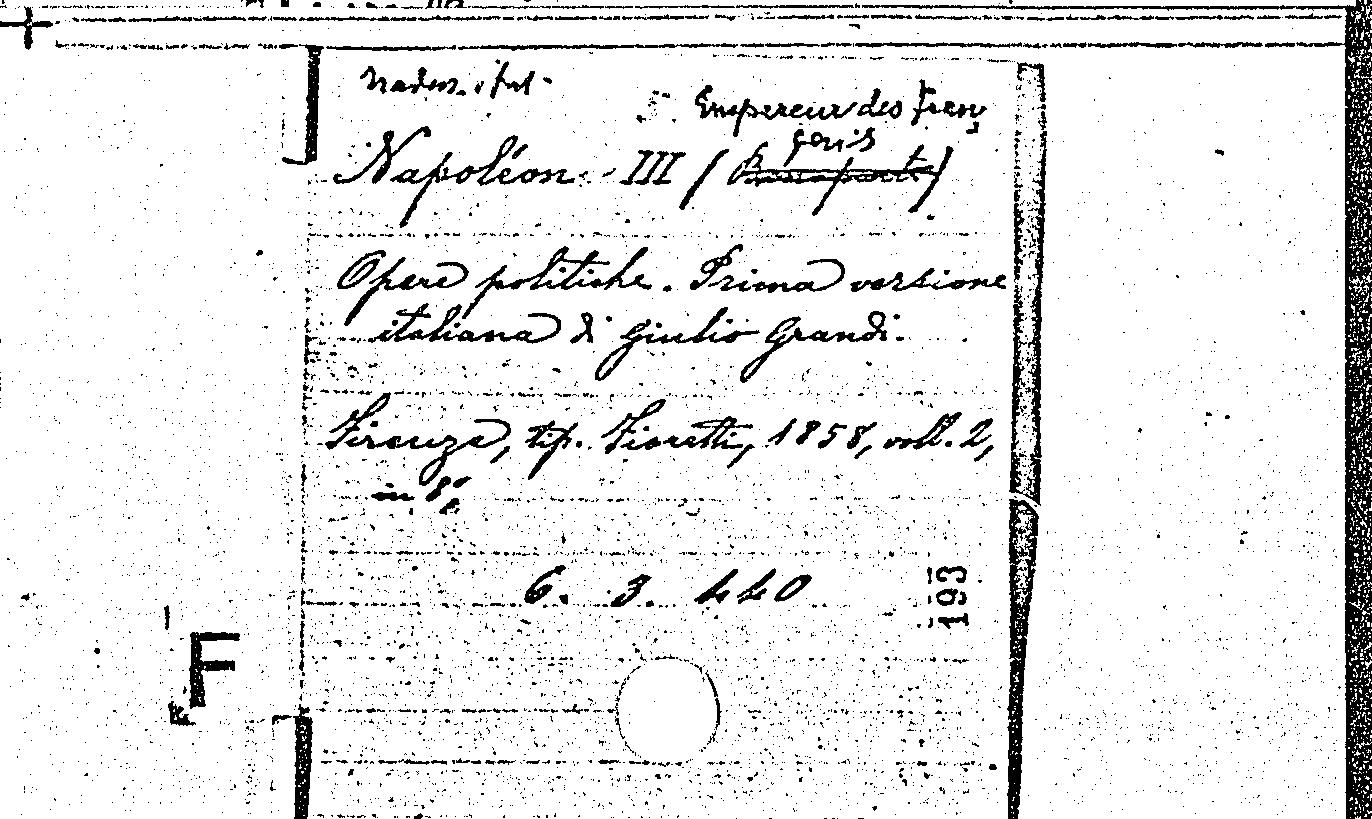 Traduz. ital.
Empereur des Fran
çais
Napoléon III (Bonaparte)
Opere politiche. Prima versione
italiana di Giulio Grandi.
Firenze, tip. Fioretti, 1858, voll. 2,
in 8º
6. 3. 440
193
F